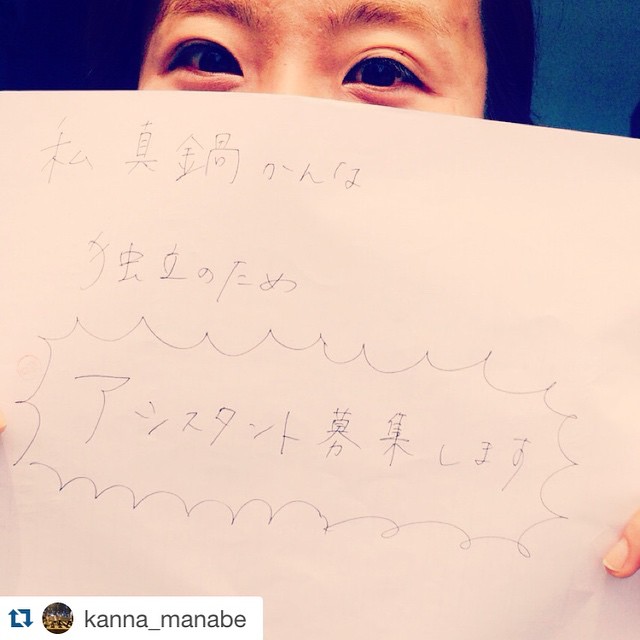 私 真鍋かんな
独立のため
アシスタント募集します
kanna_manabe